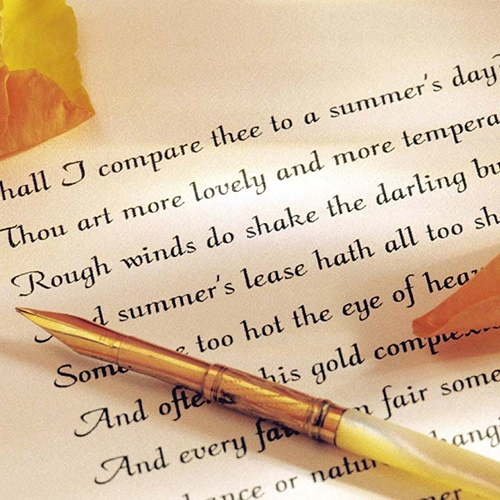 hall I compare thee to a summer's day?
Thou art more lovely and more tempera
Rough winds do shake the darling bu
d summer's lease hath all too sh
Som too hot the eye of hea
And ofte his gold complex
And every fai fair some
ance or natu hang
mer